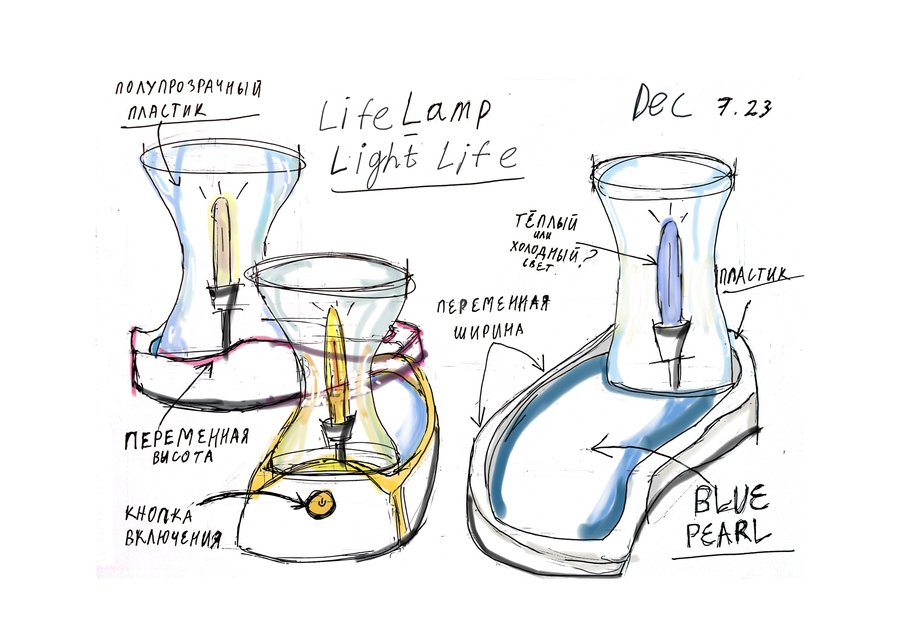 ПОЛУПРОЗРАЧНЫЙ
ПЛАСТИК
Life Lamp
Light Life
Dec 7.23
ТЁПЛЫЙ
или
ХОЛОДНЫЙ
СВЕТ.?
ПЛАСТИК
ПЕРЕМЕННАЯ
ШИРИНА
ПЕРЕМЕННАЯ
ВЫСОТА
КНОПКА
ВКЛЮЧЕНИЯ
BLUE
PEARL